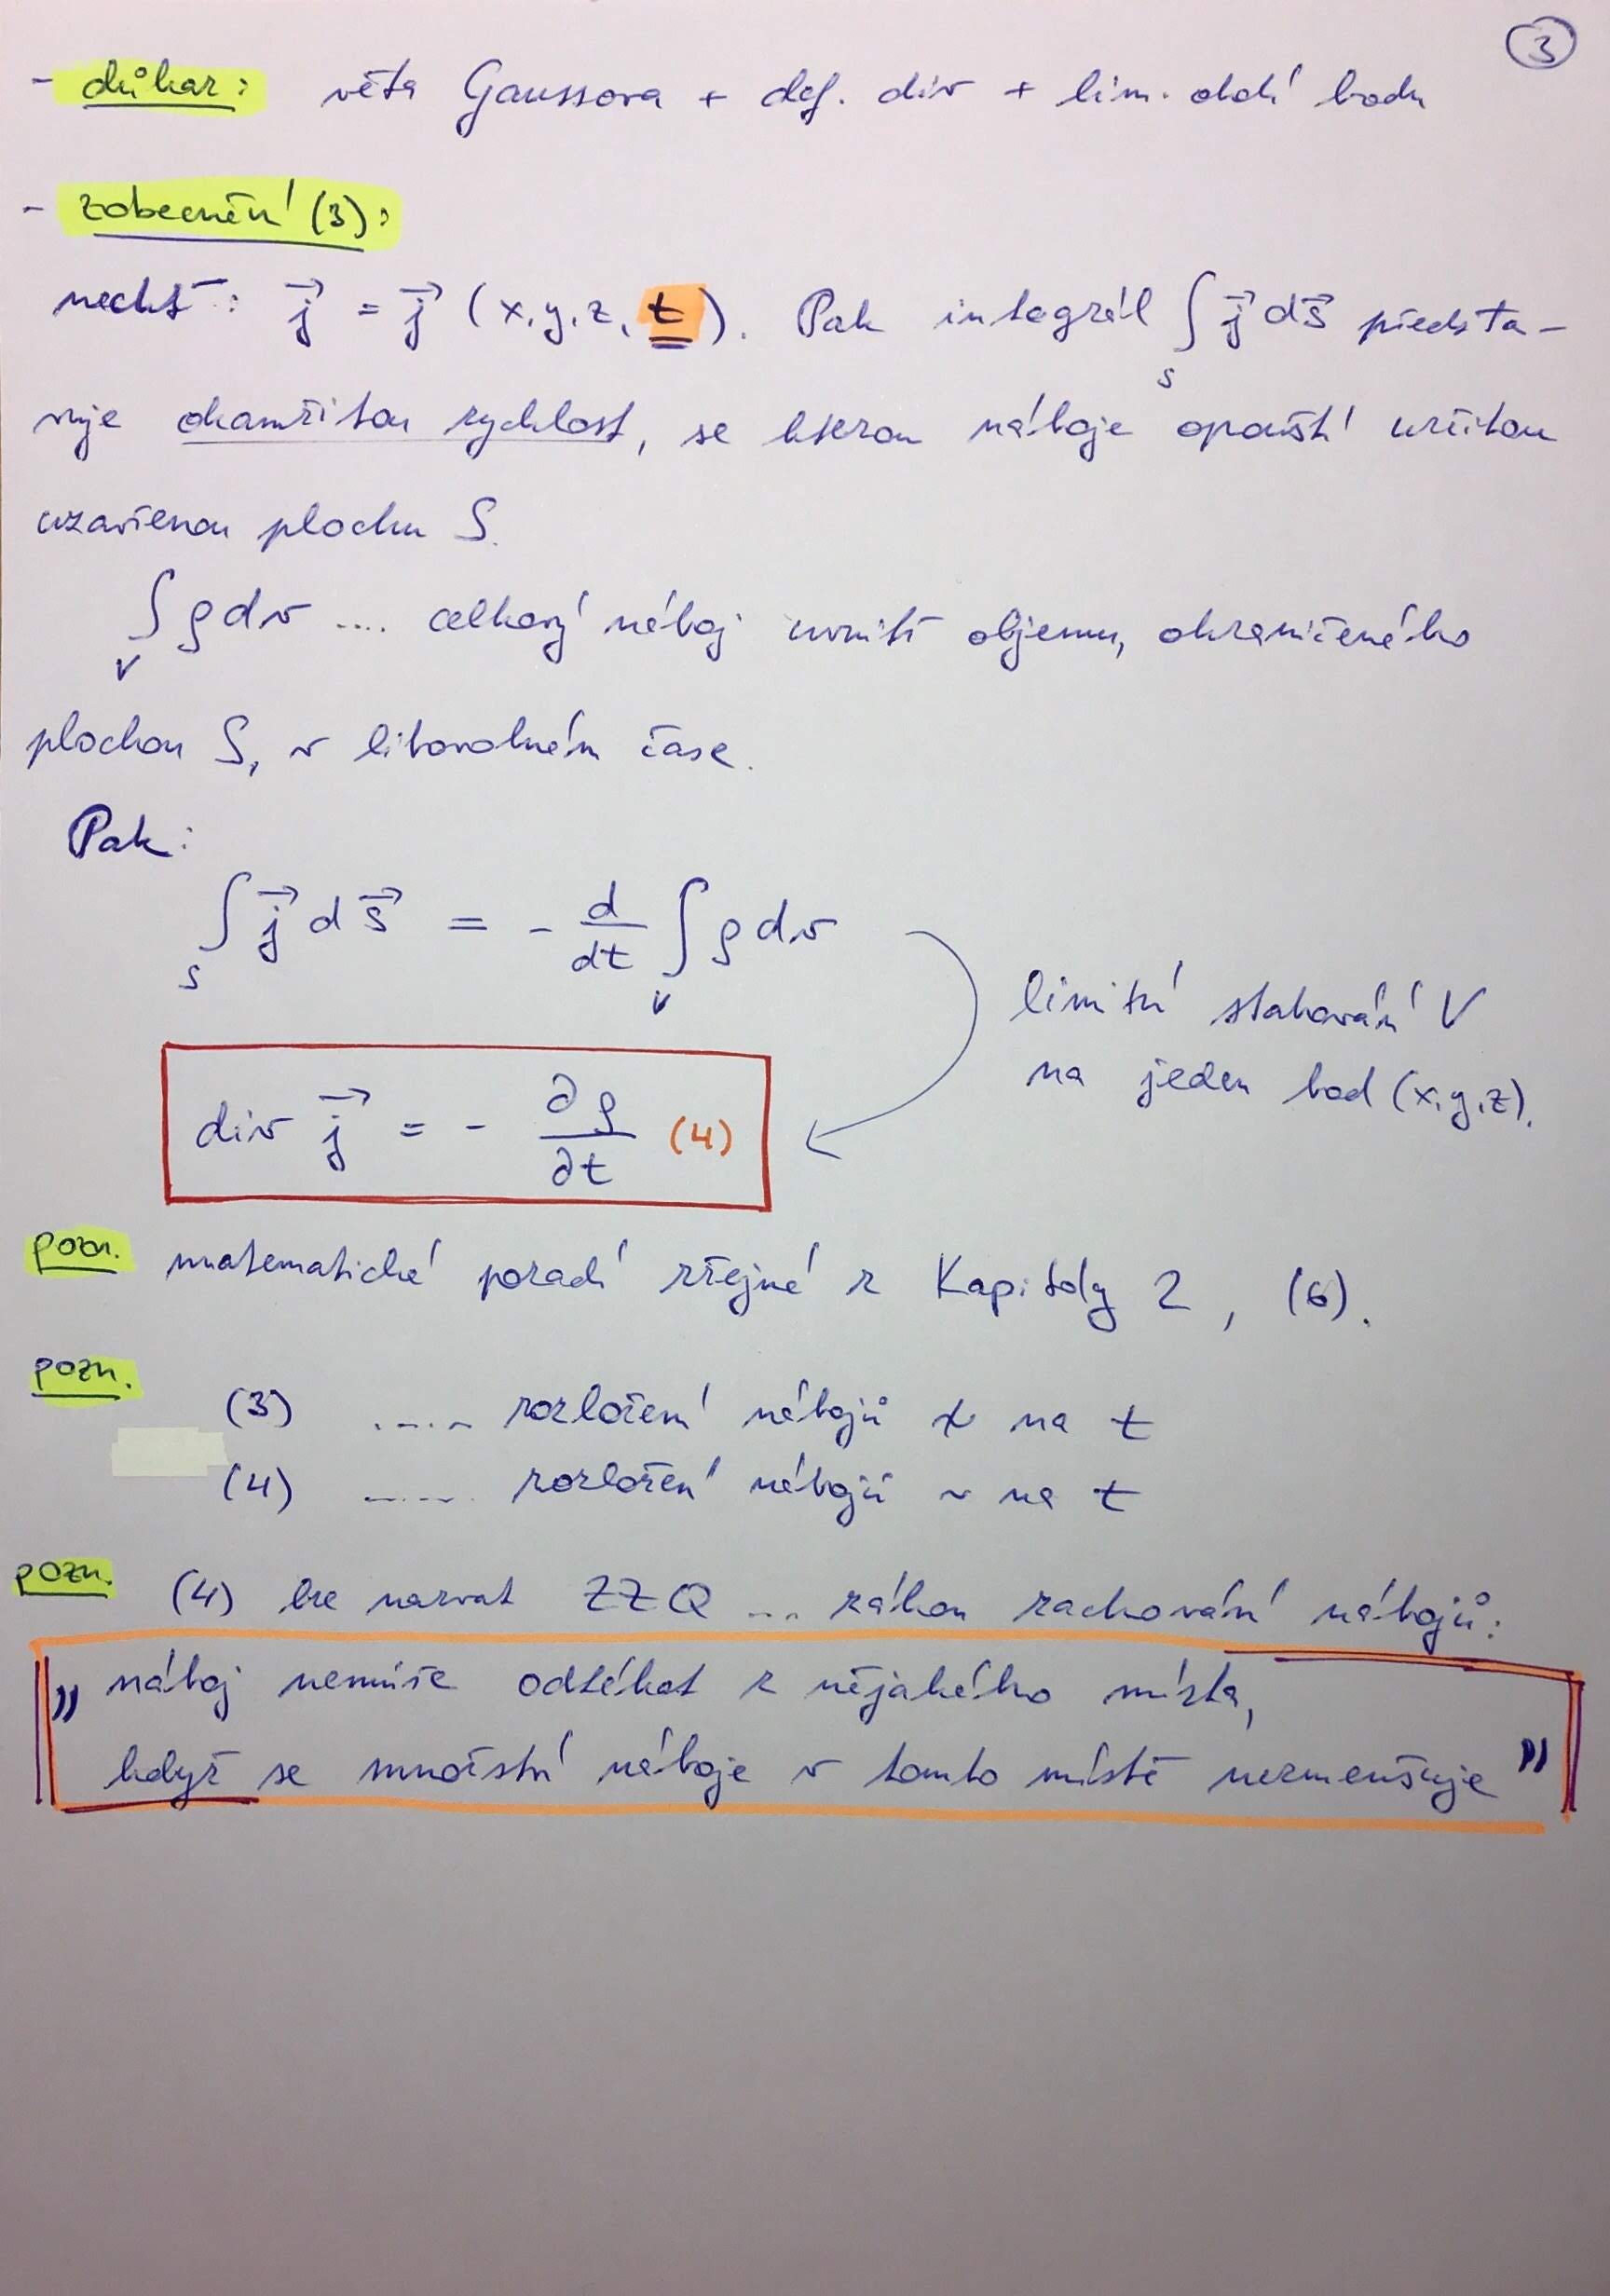 3
- důkaz: věta Gaussova + def. div + lim. okolí bodu
- zobecnění (3):
nechť: j⃗ = j⃗ (x,y,z,t). Pak integrál ∫_S j⃗ ds⃗ představ-
uje okamžitou rychlost, se kterou náboje opouští určitou
uzavřenou plochu S.
∫_V ρ dv .... celkový náboj uvnitř objemu, ohraničeného
plochou S, v libovolném čase.
Pak:
∫_S j⃗ ds⃗ = - d/dt ∫_V ρ dv
limitní stahování V
na jeden bod (x,y,z).
div j⃗ = - ∂ρ/∂t (4)
pozn. matematické pozadí zřejmé z Kapitoly 2, (6).
pozn.
(3) ..... rozložení nábojů x na t
(4) ..... rozložení nábojů ~ na t
pozn. (4) lze nazvat ZZQ ... zákon zachování nábojů:
„ náboj nemůže odtékat z nějakého místa,
když se množství náboje v tomto místě nezmenšuje "